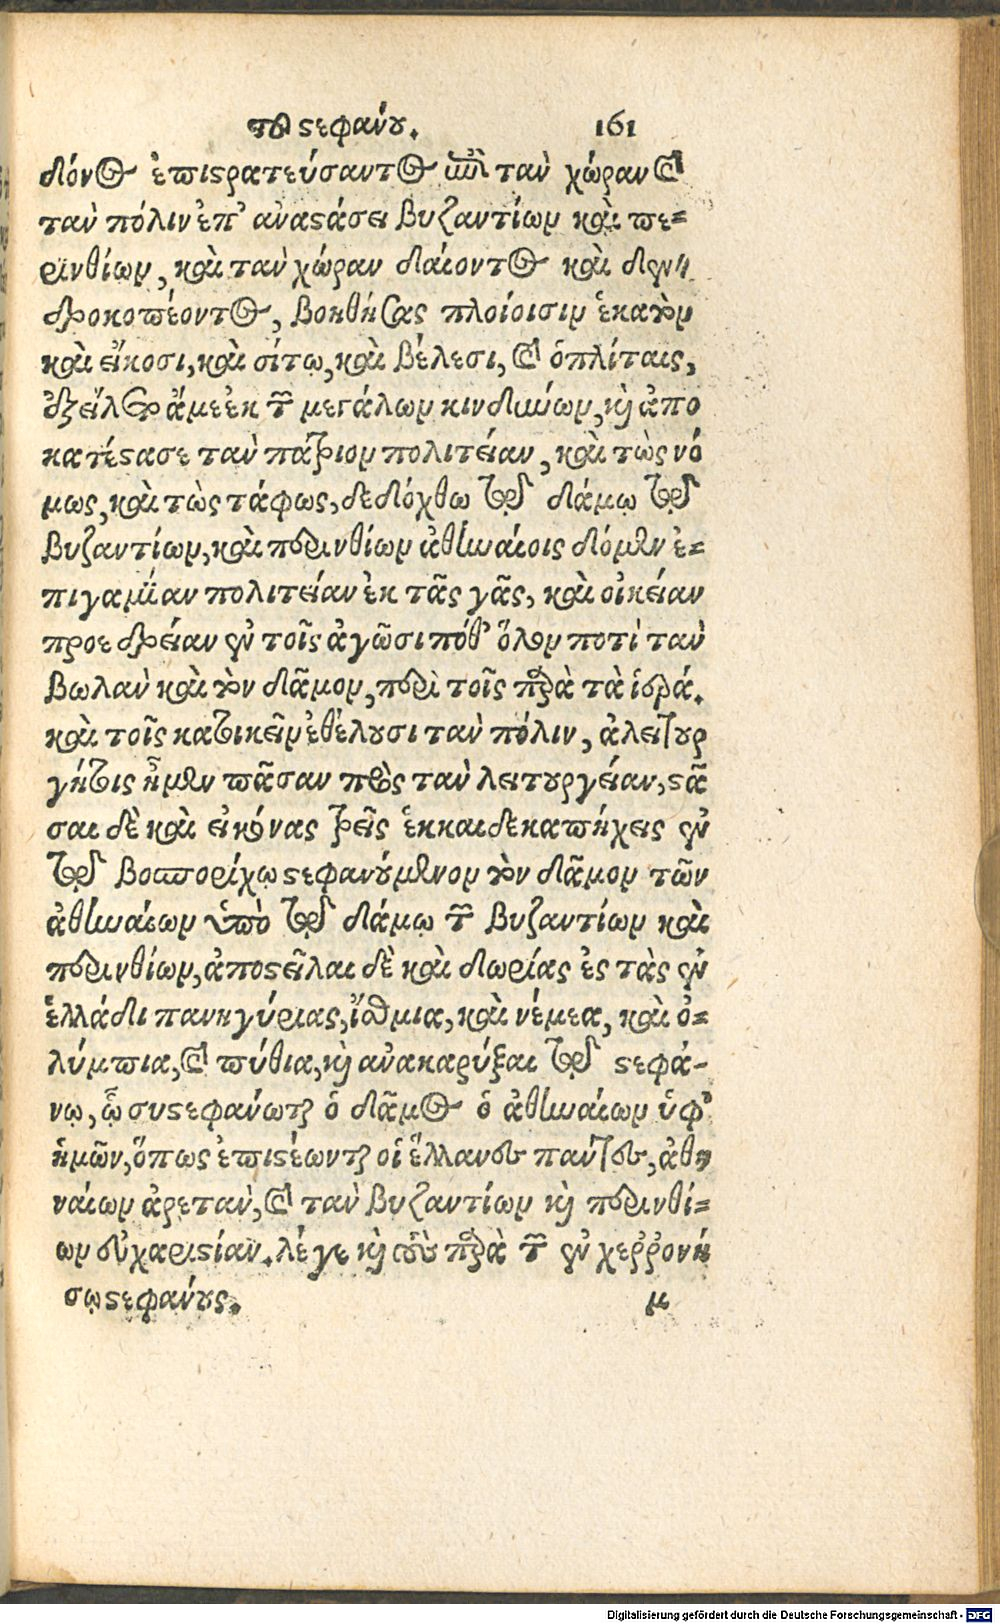 τοῦ στεφάνου. 161
δόνος ἐπιστρατεύσαντος ἐπὶ τὰν χώραν καὶ
τὰν πόλιν ἐπ' ἀναστάσει Βυζαντίων καὶ πε-
ρινθίων, καὶ τὰν χώραν δαίοντος καὶ δεν-
δροκοπέοντος, βοηθήσας πλοίοισιν ἑκατὸν
καὶ εἴκοσι, καὶ σίτῳ, καὶ βέλεσι, καὶ ὁπλίταις,
ἐξείλετο ἄμε ἐκ τῶν μεγάλων κινδύνων, καὶ ἀπο
κατέστασε τὰν πάτριον πολιτείαν, καὶ τὼς νό
μως, καὶ τὼς τάφως, δεδόχθω τῷ δάμῳ τῷ
Βυζαντίων, καὶ περινθίων ἀθηναίοις δόμεν ἐ-
πιγαμίαν πολιτείαν ἐκ τᾶς γᾶς, καὶ οἰκείαν
προεδρείαν ἐν τοῖς ἀγῶσι πόθ' ὅλον ποτὶ τὰν
Βωλὰν καὶ τὸν δᾶμον, περὶ τοῖς παρὰ τὰ ἱερά.
καὶ τοῖς κατοικεῖν ἐθέλουσι τὰν πόλιν, ἀλειτουρ
γήτοις ἦμεν πᾶσαν πρὸς τὰν λειτουργείαν, στᾶ
σαι δὲ καὶ εἰκόνας τρεῖς ἑκκαιδεκαπήχεις ἐν
τῷ Βοσπορίχῳ στεφανούμενον τὸν δᾶμον τῶν
ἀθηναίων ὑπὸ τῷ δάμῳ τῶν Βυζαντίων καὶ
περινθίων, ἀποστεῖλαι δὲ καὶ δωρίας ἐς τὰς ἐν
ἑλλάδι πανηγύριας, ἴσθμια, καὶ νέμεα, καὶ ὀ-
λύμπια, καὶ πύθια, καὶ ἀνακαρύξαι τῷ στεφά-
νῳ, ᾧ συστεφανώται ὁ δᾶμος ὁ ἀθηναίων ὑφ'
ἡμῶν, ὅπως ἐπιστέωνται οἱ ἕλλανες πάντες, ἀθη
ναίων ἀρετὰν, καὶ τὰν Βυζαντίων καὶ περινθί-
ων εὐχαριστίαν. λέγε καὶ τοὺς παρὰ τῶν ἐν χεῤῥονή
σῳ στεφάνους. μ
Digitalisierung gefördert durch die Deutsche Forschungsgemeinschaft - DFG